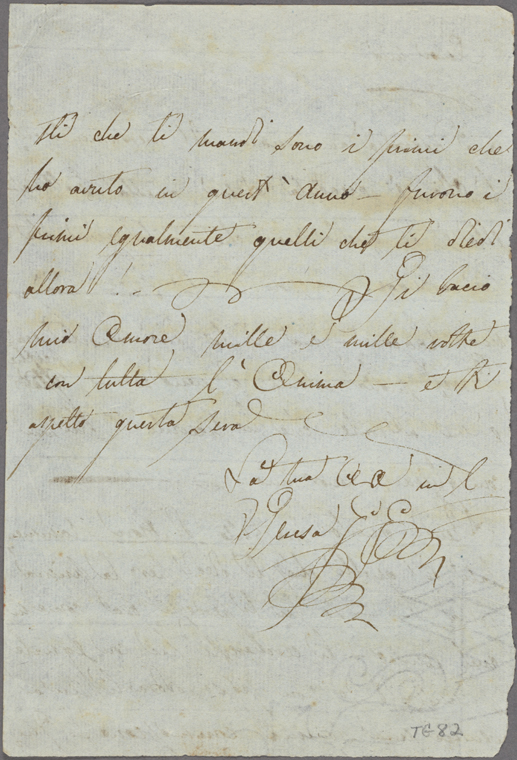 tti che ti mandi sono i primi che
ho avuto in quest' anno – furono i
primi egualmente quelli che ti diedi
allora! – Ti bacio
mio Amore mille e mille volte
con tutta l'Anima – e ti
aspetto questa sera
La tua in
TG 82